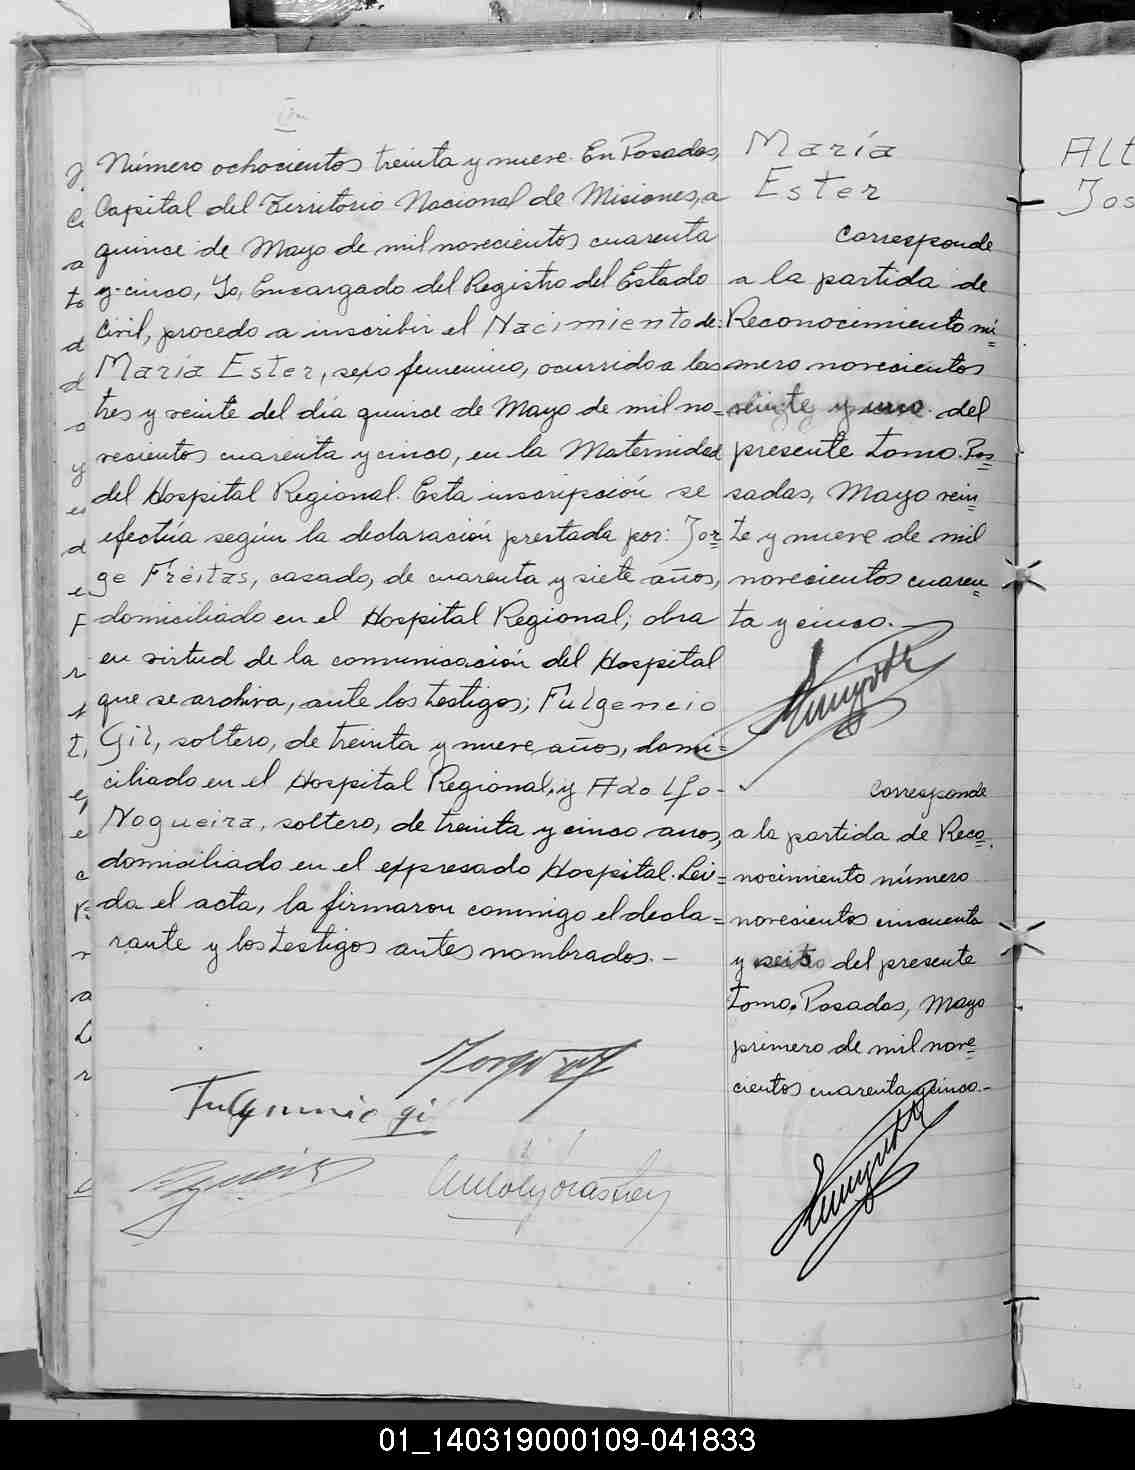 Número ochocientos treinta y nueve. En Posadas,
Capital del Territorio Nacional de Misiones, a
quince de Mayo de mil novecientos cuarenta
y cinco, Yo, Encargado del Registro del Estado
Civil, procedo a inscribir el Nacimiento de:
María Ester, sexo femenino, ocurrido a las
tres y veinte del día quince de Mayo de mil no=
vecientos cuarenta y cinco, en la Maternidad
del Hospital Regional. Esta inscripción se
efectúa según la declaración prestada por: Jor=
ge Freitas, casado, de cuarenta y siete años,
domiciliado en el Hospital Regional; obra
en virtud de la comunicación del Hospital
que se archiva, ante los testigos; Fulgencio
Gil, soltero, de treinta y nueve años, domi=
ciliado en el Hospital Regional, y Adolfo-
Nogueira, soltero, de treinta y cinco años,
domiciliado en el expresado Hospital. Leí=
da el acta, la firmaron conmigo el decla=
rante y los testigos antes nombrados.-
María
Ester
Corresponde
a la partida de
Reconocimiento nú=
mero novecientos
veinte y uno del
presente tomo. Po=
sadas, Mayo vein=
te y nueve de mil
novecientos cuaren=
ta y cinco.-
Corresponde
a la partida de Reco=
nocimiento número
novecientos cincuenta
y del presente
tomo. Posadas, Mayo
primero de mil nove=
cientos cuarenta y cinco.-
Alt
Jos
01_140319000109-041833